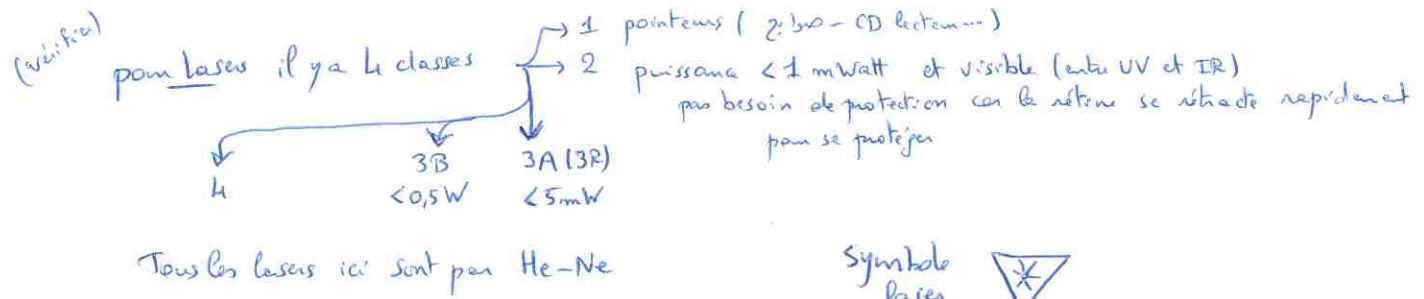 (vérifier)
pour lasers il y a 4 classes
1 pointeurs ( - CD lecteur...)
2 puissance < 1 mWatt et visible (entre UV et IR)
pas besoin de protection car la rétine se rétracte rapidement
pour se protéger
3A (3R)
<5mW
3B
<0,5W
4
Tous les lasers ici sont par He-Ne
Symbole
laser